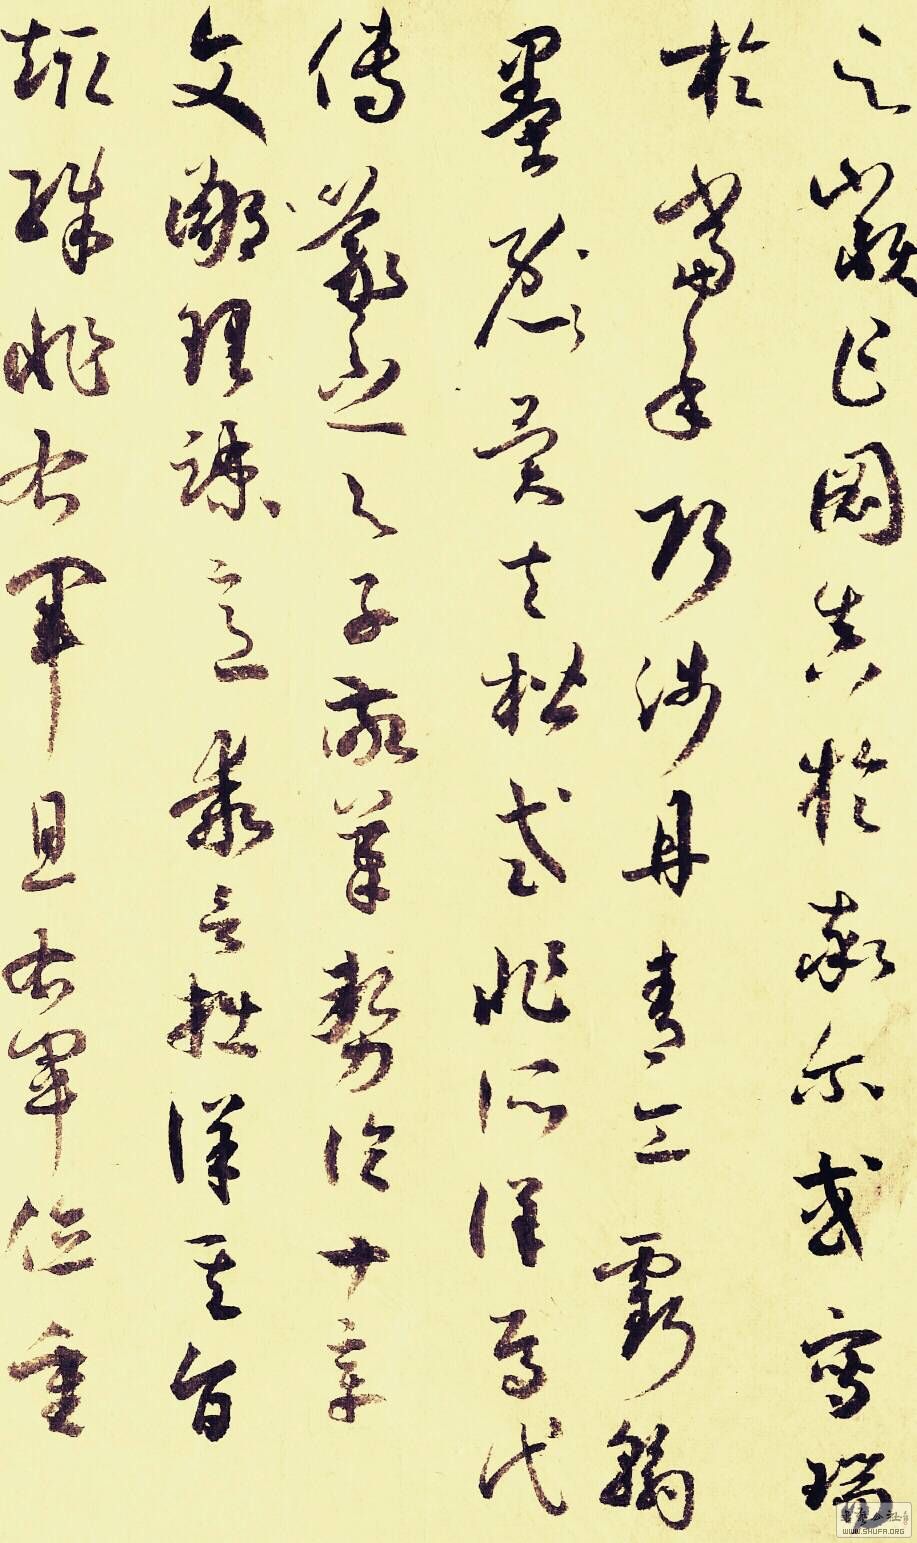 之類乍圖真於率尔或寫瑞
於當年巧涉丹青工虧翰
墨異夫楷式非所詳焉代
傳羲之与子敬筆勢論十章
文鄙理疎意乖言拙詳其旨
趣殊非右軍且右軍位重
WWW.SHUFA.ORG